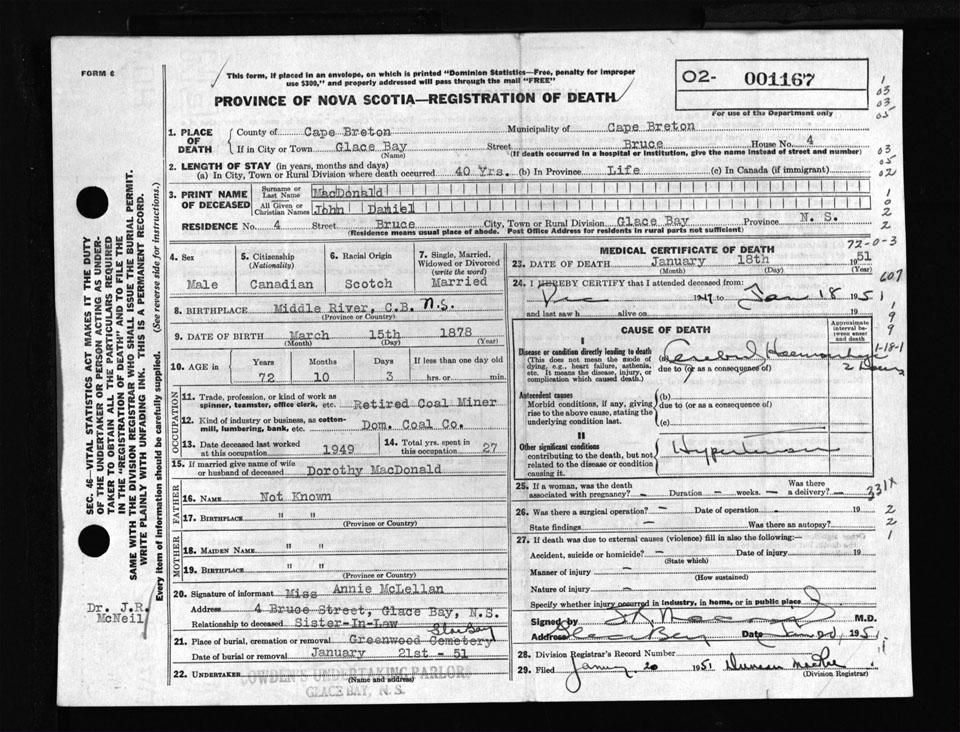 FORM 6
This form, if placed in an envelope, on which is printed "Dominion Statistics—Free, penalty for improper
use $300," and properly addressed will pass through the mail "FREE"
PROVINCE OF NOVA SCOTIA—REGISTRATION OF DEATH
O2- 001167
For use of the Department only
1. PLACE OF DEATH
County of Cape Breton Municipality of Cape Breton
If in City or Town Glace Bay Street Bruce House No. 4
(Name) (If death occurred in a hospital or institution, give the name instead of street and number)
2. LENGTH OF STAY (in years, months and days)
(a) In City, Town or Rural Division where death occurred 40 Yrs. (b) In Province Life (c) In Canada (if immigrant)
3. PRINT NAME OF DECEASED
Surname or Last Name MacDonald
All Given or Christian Names John Daniel
RESIDENCE No. 4 Street Bruce City, Town or Rural Division Glace Bay Province N. S.
(Residence means usual place of abode. Post Office Address for residents in rural parts not sufficient)
4. Sex
Male
5. Citizenship
(Nationality)
Canadian
6. Racial Origin
Scotch
7. Single, Married,
Widowed or Divorced
(write the word)
Married
8. BIRTHPLACE Middle River, C.B. N.S.
(Province or Country)
9. DATE OF BIRTH March 15th 1878
(Month) (Day) (Year)
10. AGE in
Years Months Days If less than one day old
72 10 3 hrs. or min.
OCCUPATION
11. Trade, profession, or kind of work as
spinner, teamster, office clerk, etc. Retired Coal Miner
12. Kind of industry or business, as cotton-
mill, lumbering, bank, etc. Dom. Coal Co.
13. Date deceased last worked
at this occupation 1949
14. Total yrs. spent in
this occupation 27
15. If married give name of wife
or husband of deceased Dorothy MacDonald
FATHER
16. NAME Not Known
17. BIRTHPLACE " "
(Province or Country)
MOTHER
18. MAIDEN NAME " "
19. BIRTHPLACE " "
(Province or Country)
20. Signature of informant Miss Annie McLellan
Address 4 Bruce Street, Glace Bay, N.S.
Relationship to deceased Sister-In-Law
21. Place of burial, cremation or removal Greenwood Cemetery Glace Bay
Date of burial or removal January 21st - 51
22. UNDERTAKER COWDEN'S UNDERTAKING PARLORS
(Name and address)
GLACE BAY, N. S.
MEDICAL CERTIFICATE OF DEATH
72-0-3
23. DATE OF DEATH January 18th 1951
(Month) (Day) (Year)
24. I HEREBY CERTIFY that I attended deceased from:
607
Dec 1947 to Jan 18 1951
and last saw h alive on 19
CAUSE OF DEATH
Approximate
interval be-
tween onset
and death
I
Disease or condition directly leading to death
(This does not mean the mode of
dying, e.g., heart failure, asthenia,
etc. It means the disease, injury, or
complication which caused death.)
(a) Cerebral Haemorrhage
due to (or as a consequence of)
1-18-1
2 Hours
Antecedent causes
Morbid conditions, if any, giving
rise to the above cause, stating the
underlying condition last.
(b)
due to (or as a consequence of)
(c)
II
Other significant conditions
contributing to the death, but not
related to the disease or condition
causing it.
Hypertension
25. If a woman, was the death
associated with pregnancy? - Duration - weeks. - Was there
a delivery?
331X
26. Was there a surgical operation? - Date of operation - 19
State findings - Was there an autopsy?
27. If death was due to external causes (violence) fill in also the following:—
Accident, suicide or homicide? - Date of injury 19
(State which)
Manner of injury -
(How sustained)
Nature of injury -
Specify whether injury occurred in industry, in home, or in public place
Signed by M.D.
Address Glace Bay Date Jan 20 1951
28. Division Registrar's Record Number
29. Filed January 20 1951 Duncan
(Division Registrar)
SEC. 46—VITAL STATISTICS ACT MAKES IT THE DUTY
OF THE UNDERTAKER OR PERSON ACTING AS UNDER-
TAKER TO OBTAIN ALL THE PARTICULARS REQUIRED
IN THE "REGISTRATION OF DEATH" AND TO FILE THE
SAME WITH THE DIVISION REGISTRAR WHO SHALL ISSUE THE BURIAL PERMIT.
WRITE PLAINLY WITH UNFADING INK. THIS IS A PERMANENT RECORD.
Every item of information should be carefully supplied. (See reverse side for instructions.)
Dr. J.R.
McNeil
1
03
03
05
03
05
02
1
0
2
2
1
9
9
2
2
1